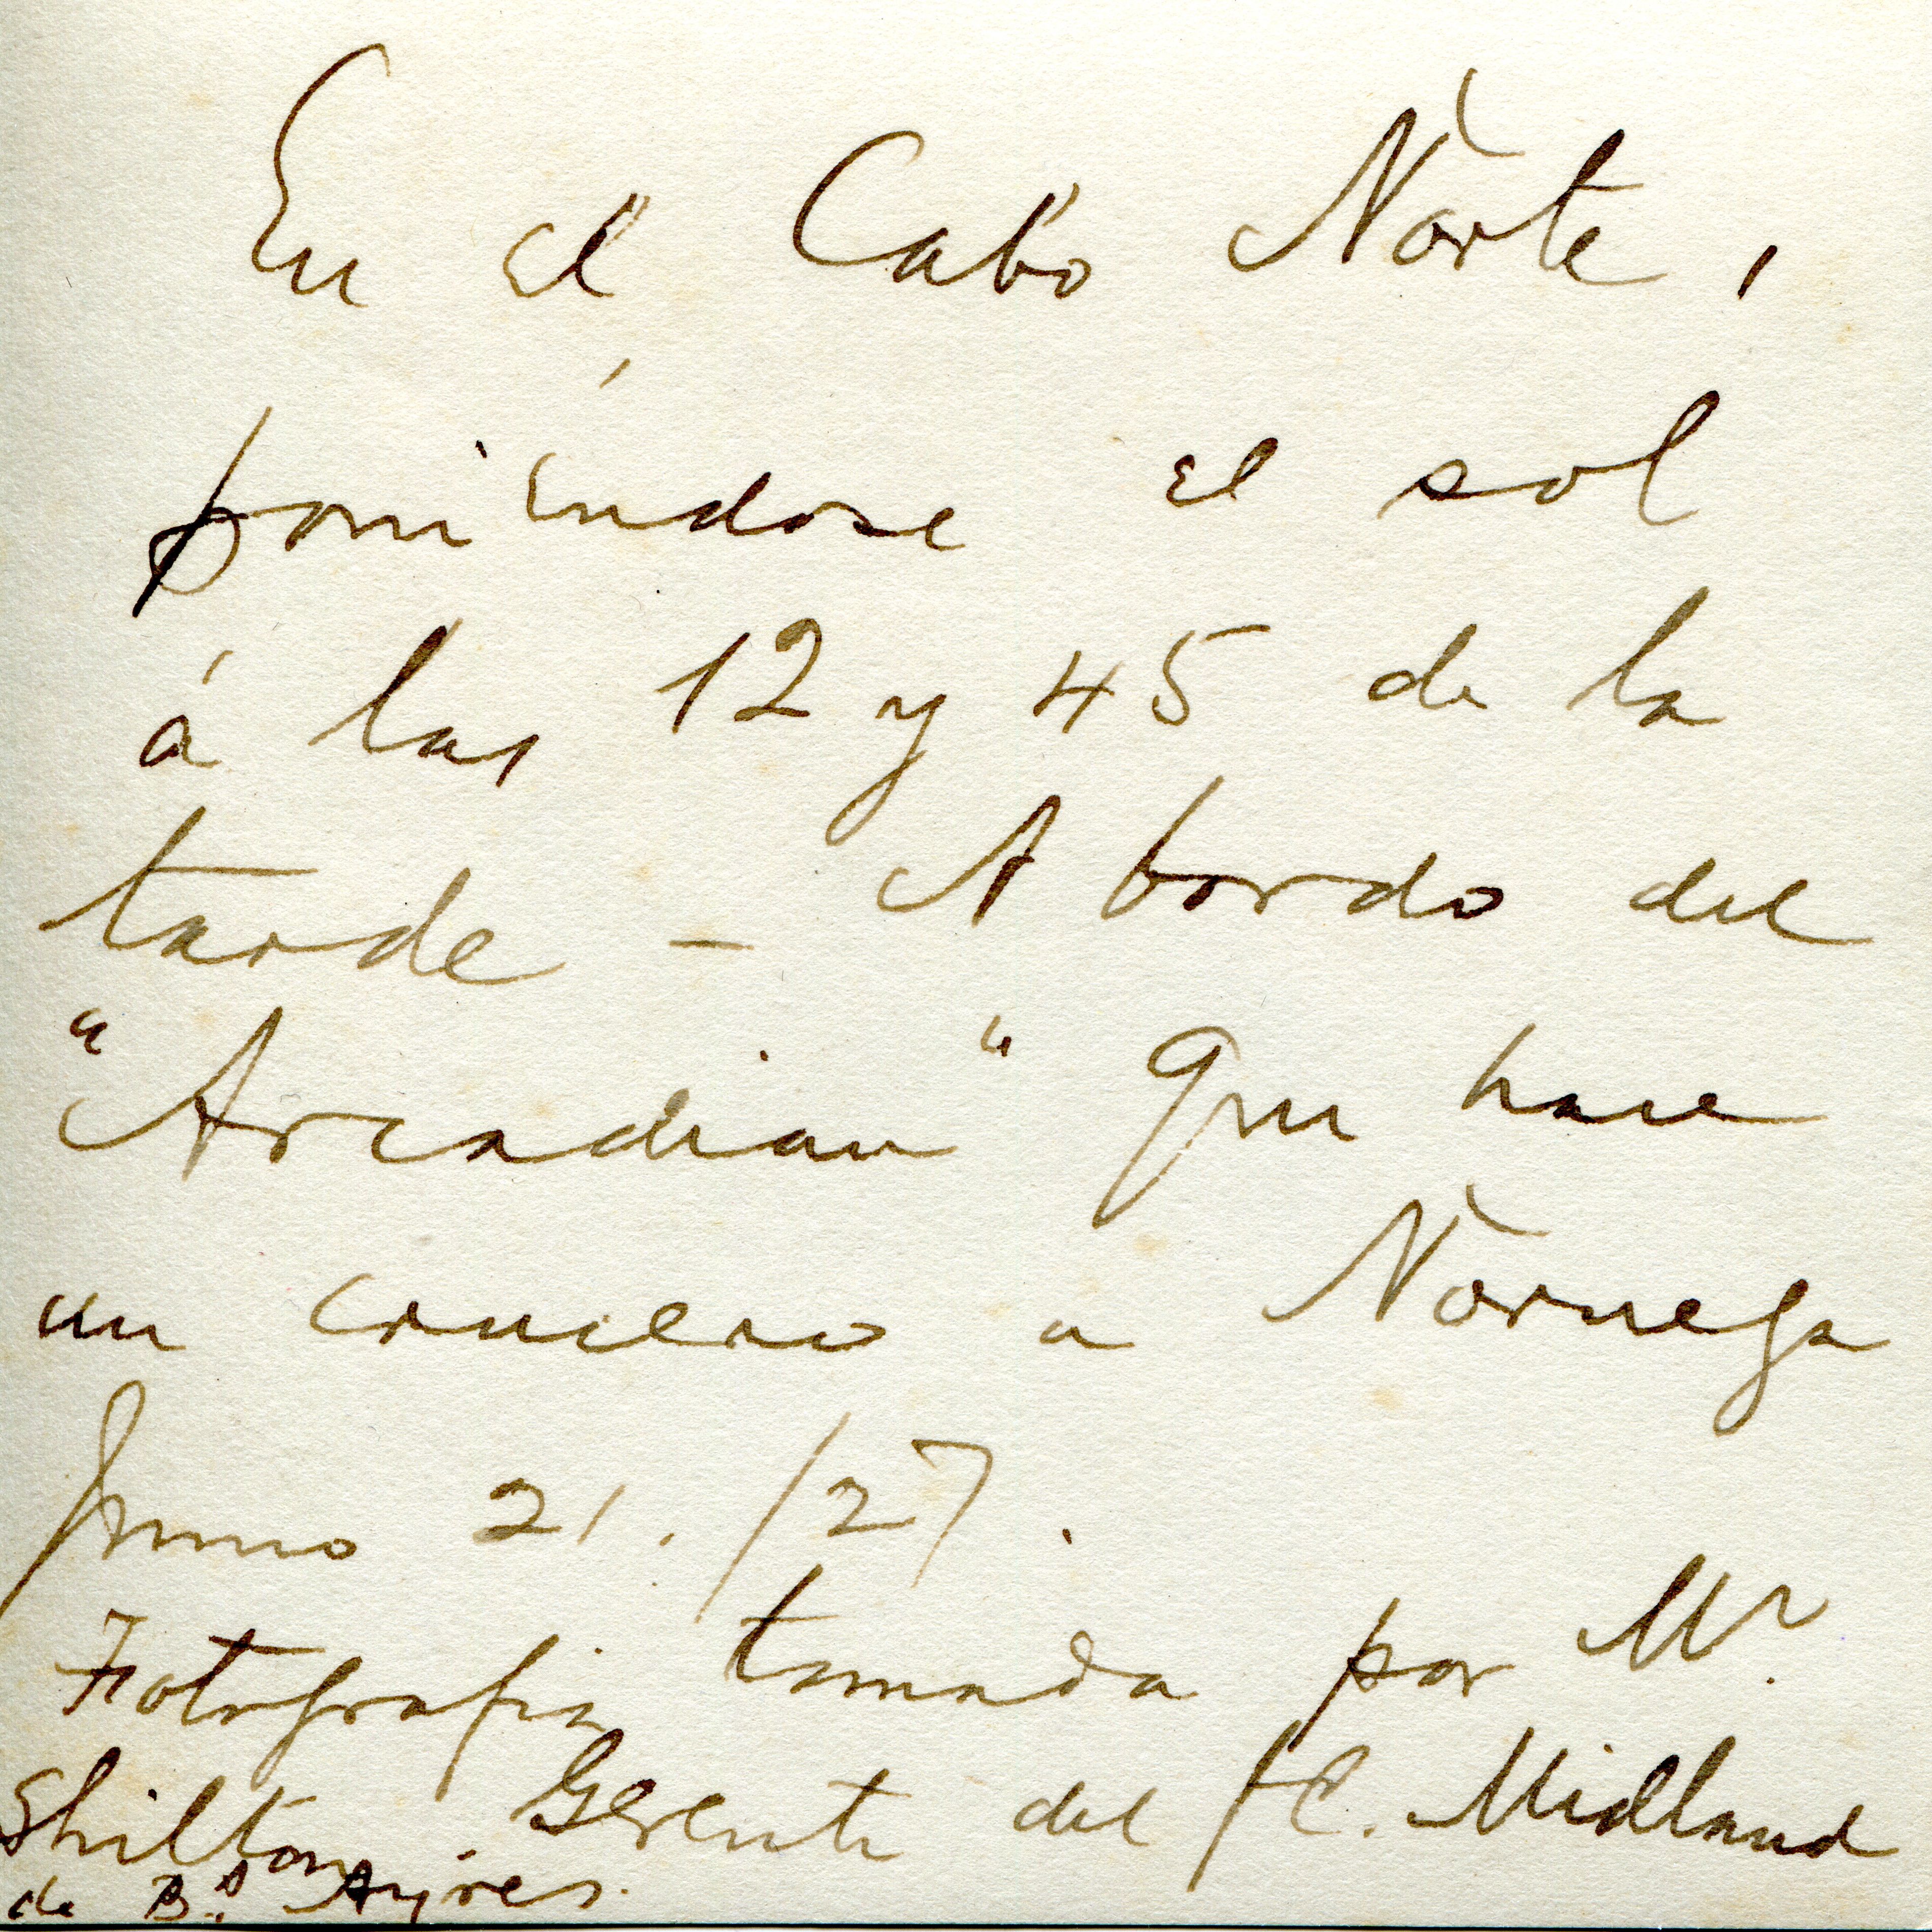 En el Cabo Norte,
poniéndose el sol
á las 12 y 45 de la
tarde - A bordo del
"Arcadian" que hace
un crucero a Noruega
Junio 21./27.
Fotografia tomada por Mr.
Shilton Gerente del F.C. Midland
de Bs. Ayres.